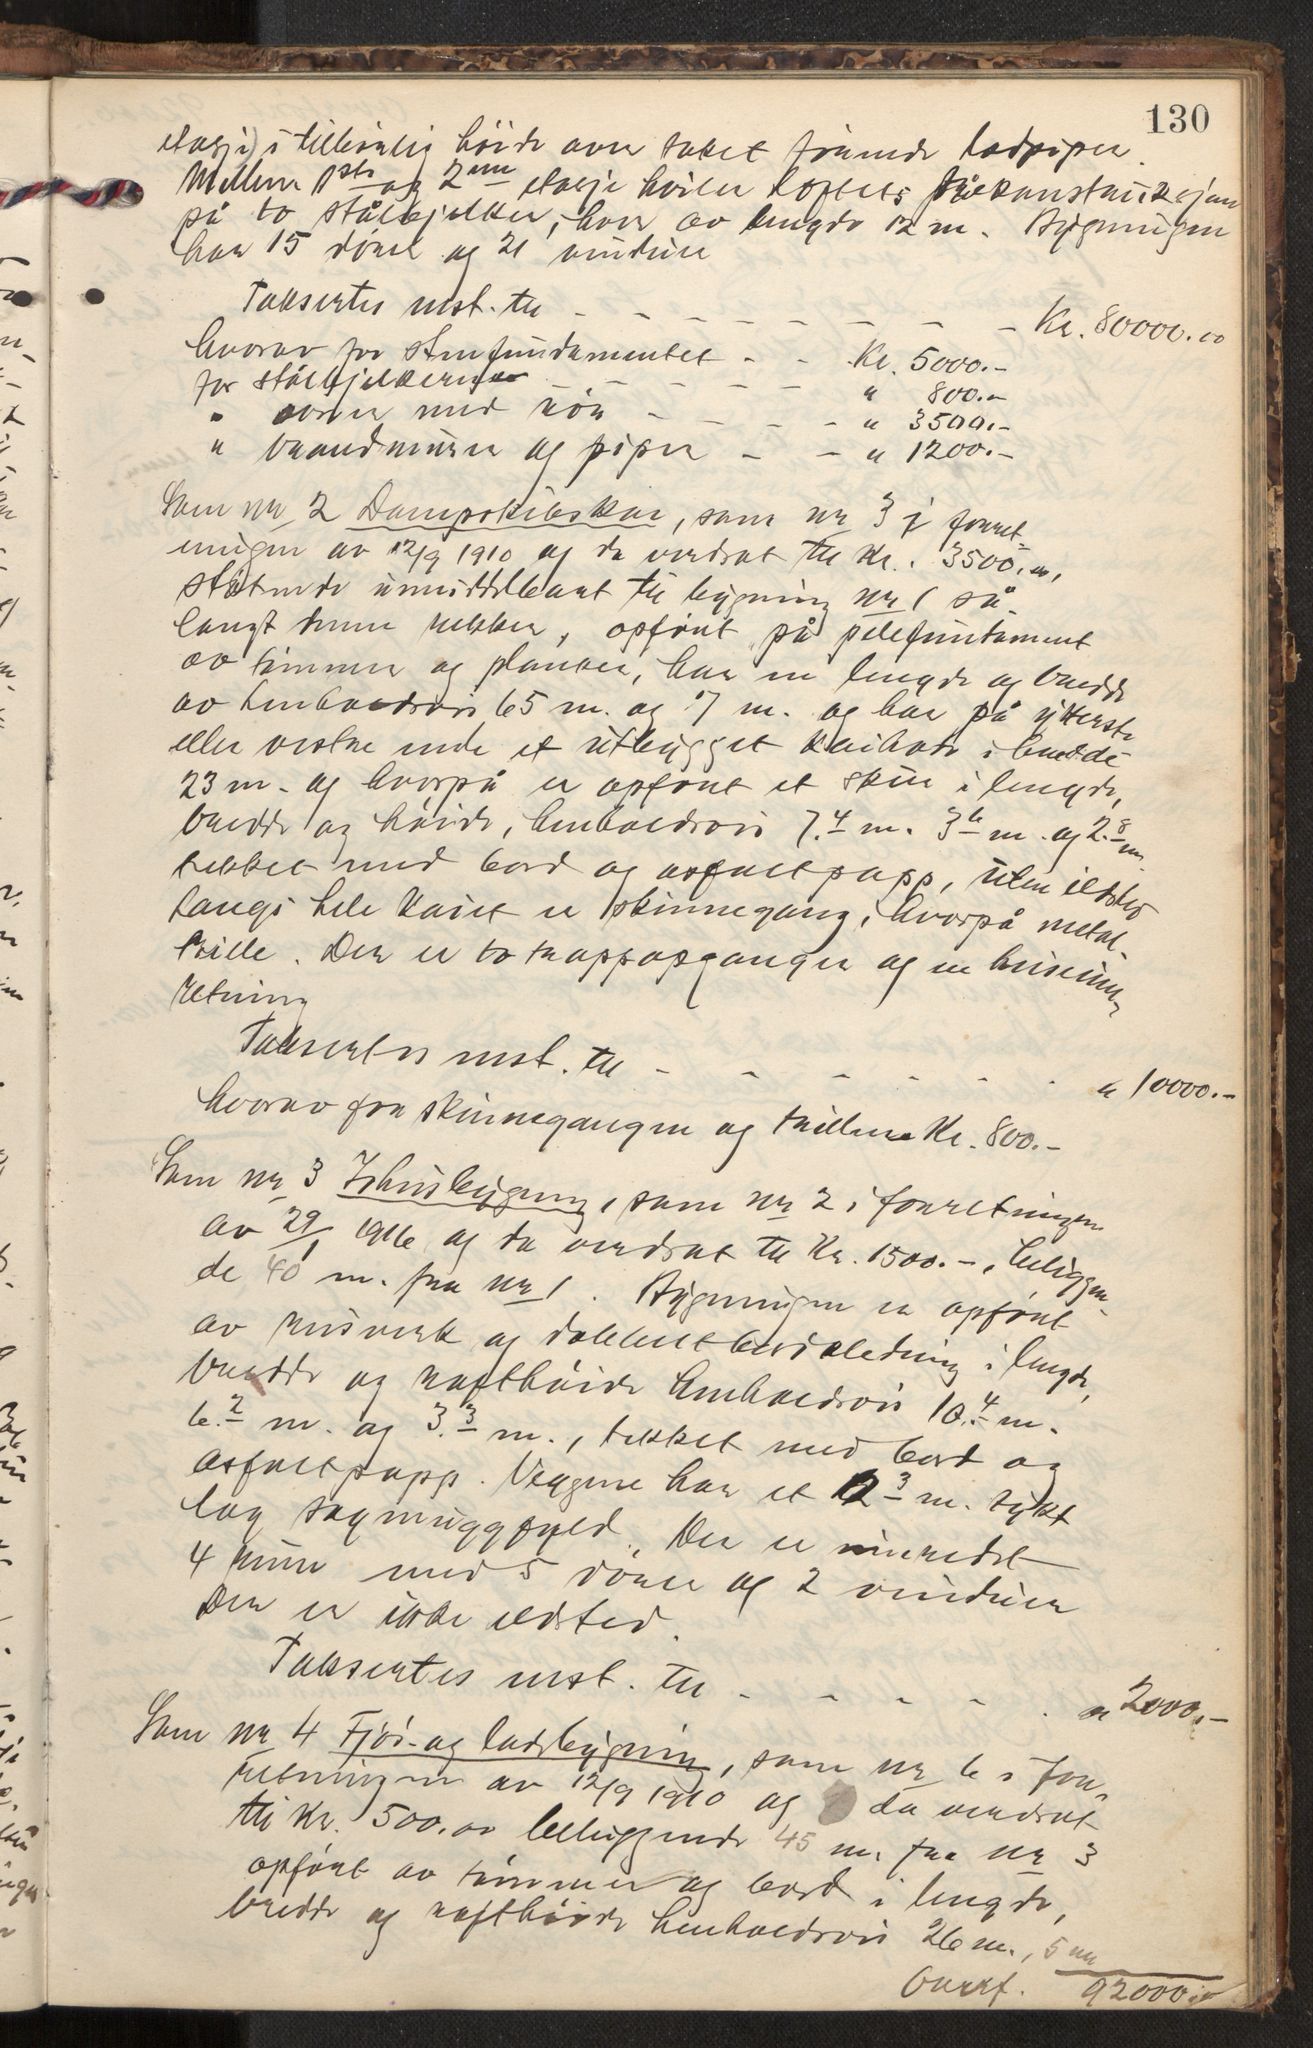 130
etasje) i tilbørlig høide over taket førende lodpiper.
Mellem 1ste og 2den etasje hviler loftets trækonstruksjon
på to stålbjelker, hver av lengde 12 m. Bygningen
har 15 dører og 21 vinduer
Takseres nst. til - - - - - - - - Kr. 80000.00
hvorav for stenfundamentet - - Kr. 5000.-
for stålbjelkerne - - - - - " 800.-
" ovner med rør - - - - " 3500.-
" brandmurer og piper - - " 1200.-
Som nr 2 Dampskibskai, som nr 3 i forret-
ningen av 12/9 1910 og da verdsat til Kr. 3500.00,
støtende umiddelbart til bygning nr 1 så-
langt denne rekker, opført på pelefundament
av tømmer og planker, har en lengde og bredde
av henholdsvis 65 m. og 7 m. og har på ytterste
eller vestre ende et utbygget kaihode i bredde
23 m. og hvorpå er opført et skur i lengde,
bredde og høide, henholdsvis 7.4 m. 3.6 m. og 2.8 m.
tekket med bord og asfaltpapp, uten ildsted
Langs hele kaiet er skinnegang, hvorpå metal-
trille. Der er to trappopganger og en heisein-
retning
Takseres nst. til - - - - - - - " 10000.-
hvorav for skinnegangen og trillerne Kr. 800.-
Som nr 3 Ishusbygning, som nr 2 i forretningen
av 29/1 1916 og da verdsat til Kr. 1500.-, beliggen-
de 40 m. fra nr 1. Bygningen er opført
av reisverk og dobbelt bordkledning i lengde,
bredde og rafthøide henholdsvis 10.4 m.
6.2 m. og 3.3 m., tekket med bord og
asfaltpapp. Veggene har et 0.3 m. tykt
lag sagmuggfyld. Der er innredet
4 rum med 5 dører og 2 vinduer
Der er ikke ildsted.
Takseres nst. til - - - - - " 2000.-
Som nr 4 Fjøs- og ladebygning, som nr 6 i for-
retningen av 12/9 1910 og da verdsat
til Kr. 500.00 beliggende 45 m. fra nr 3
opført av tømmer og bord i lengde,
bredde og rafthøide henholdsvis 26 m., 5 m
Overf. 92000.00